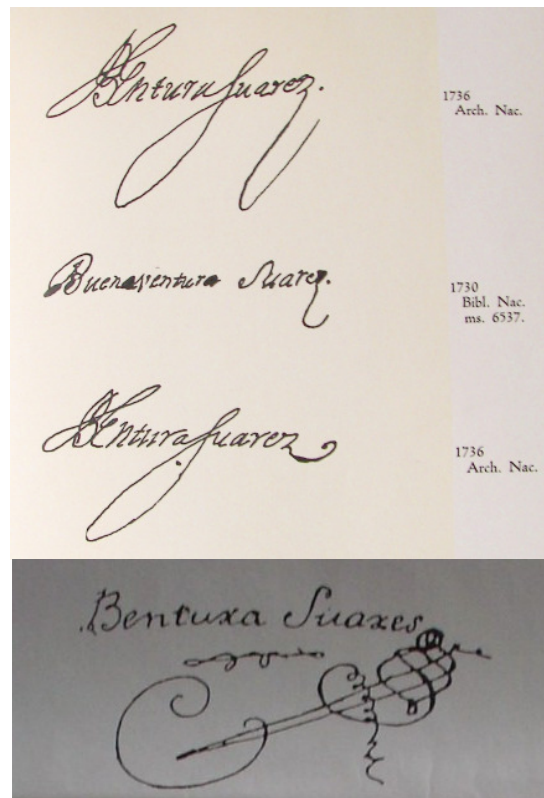 BEntura Suarez.
1736
Arch. Nac.
Buenaventura Suarez.
1730
Bibl. Nac.
ms. 6537.
BEntura Suarez
1736
Arch. Nac.
Bentuxa Suaxes